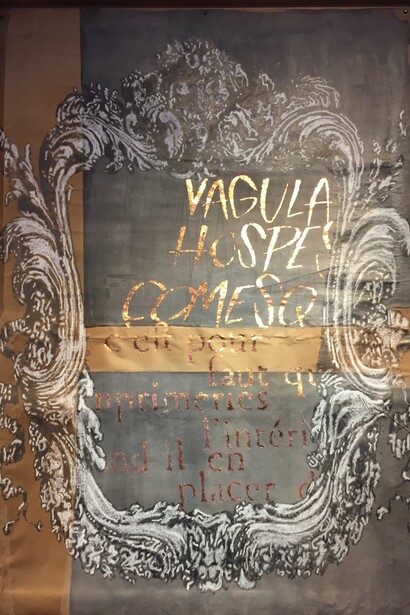 VAGULA
HOSPES
COMESQ
c'en pour
faut qu
nprimeries
l'intéri
nd il en
placer d